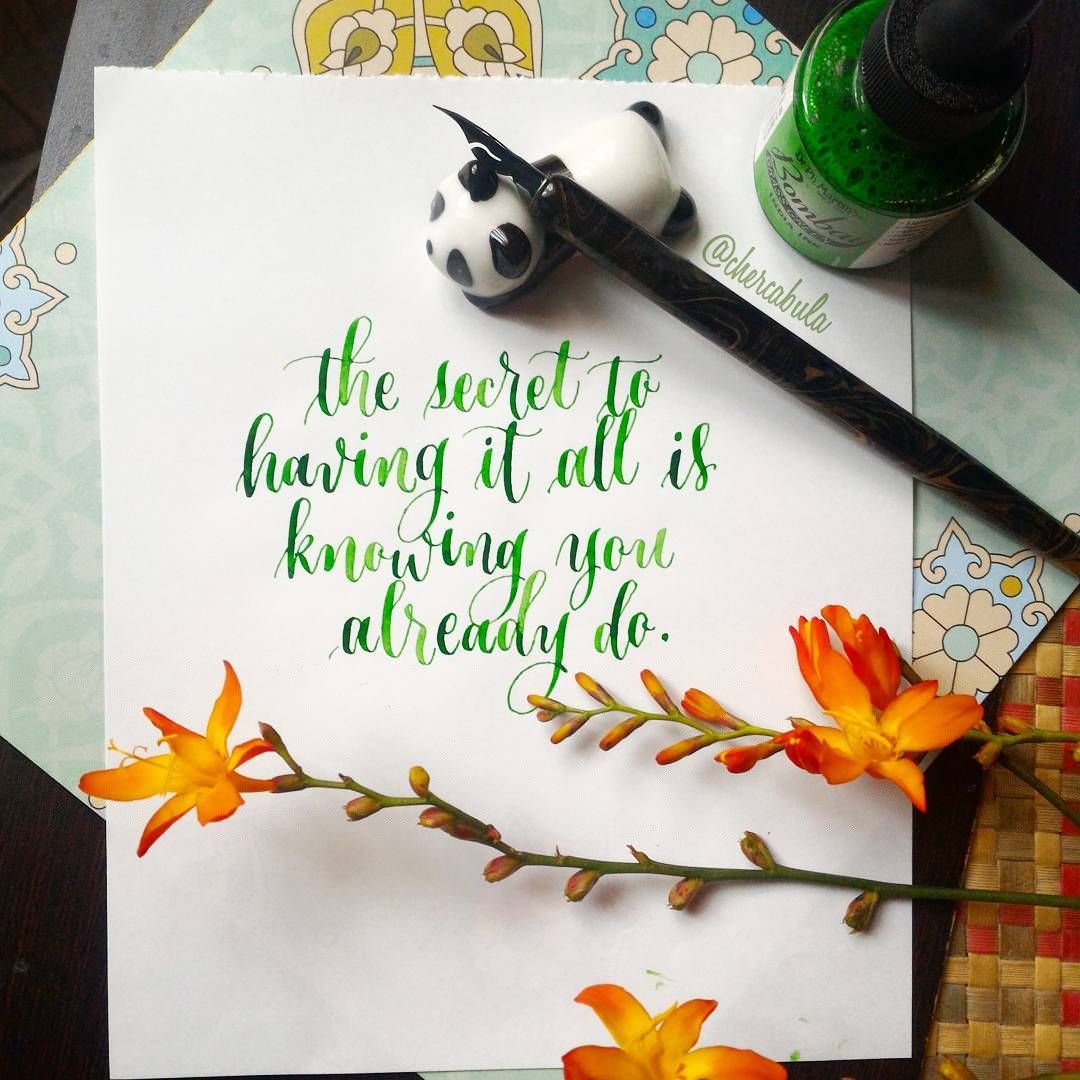 Dr. Ph. Martin's
Bombay
INDIA INK
@chercabula
the secret to
having it all is
knowing you
already do.